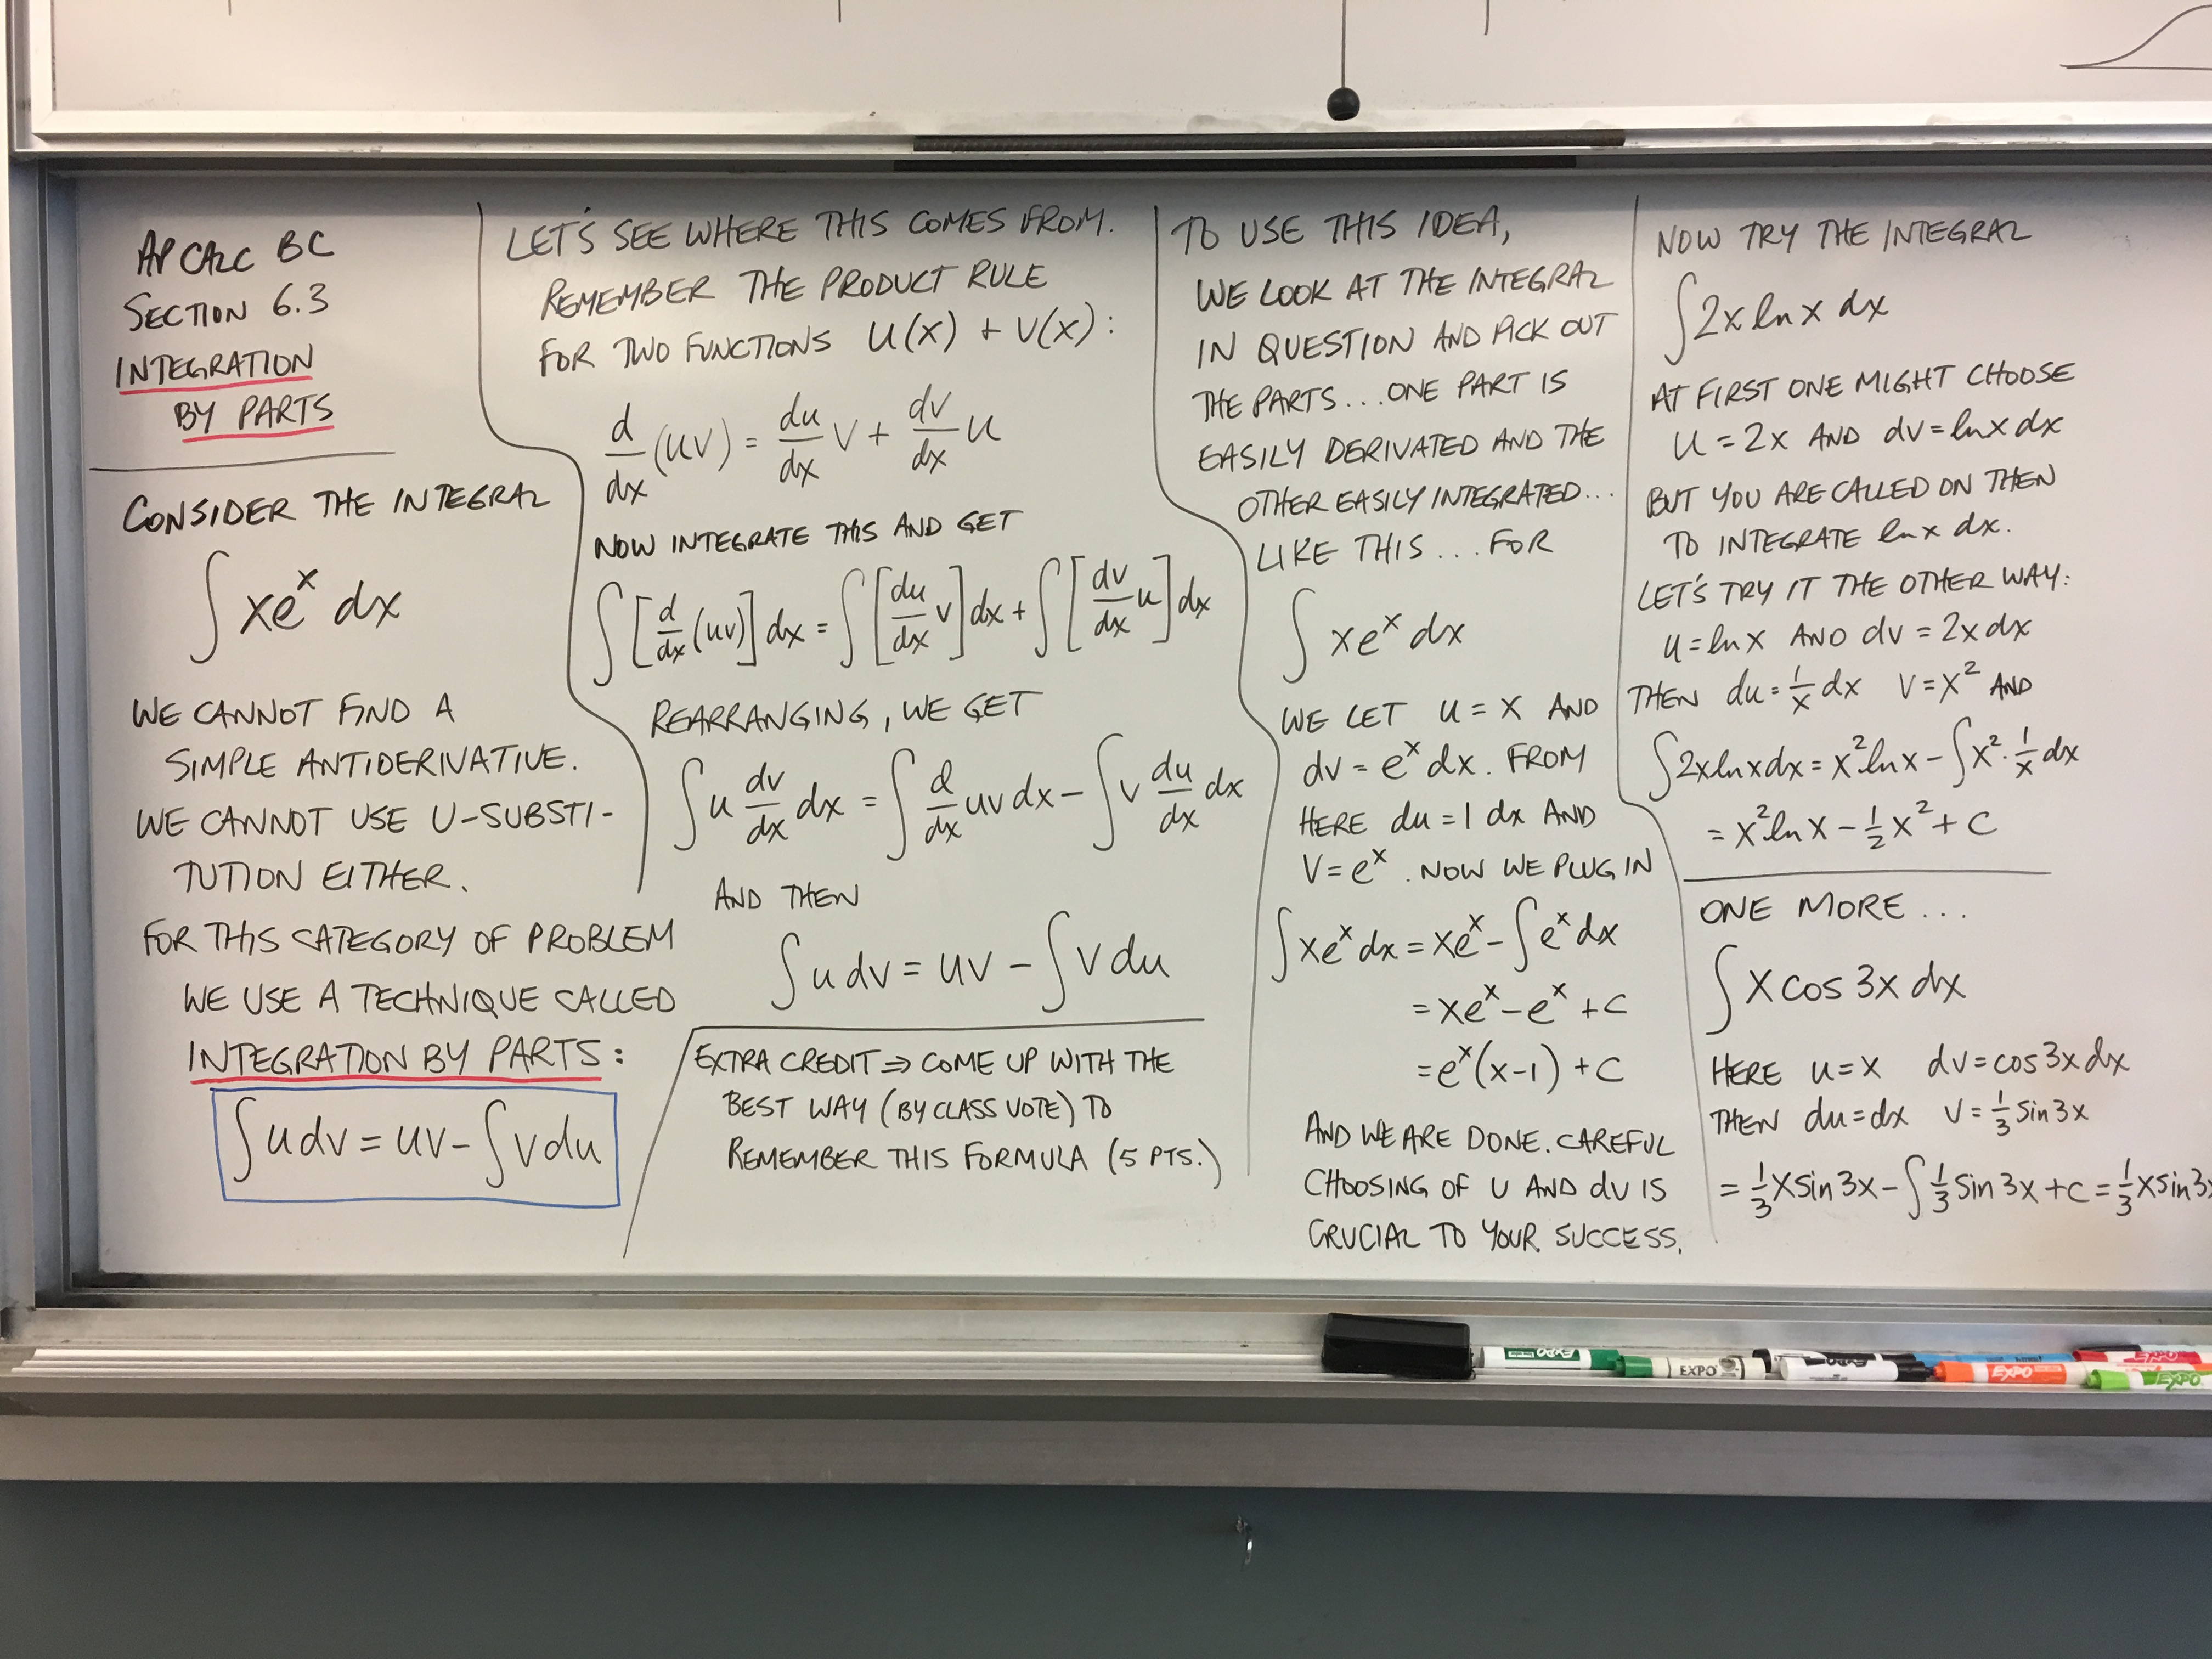 AP CALC BC
SECTION 6.3
INTEGRATION
BY PARTS
CONSIDER THE INTEGRAL
∫ xeˣ dx
WE CANNOT FIND A
SIMPLE ANTIDERIVATIVE.
WE CANNOT USE U-SUBSTI-
TUTION EITHER.
FOR THIS CATEGORY OF PROBLEM
WE USE A TECHNIQUE CALLED
INTEGRATION BY PARTS:
∫ u dv = uv - ∫ v du
LET'S SEE WHERE THIS COMES FROM.
REMEMBER THE PRODUCT RULE
FOR TWO FUNCTIONS U(x) + V(x):
d/dx (uv) = du/dx v + dv/dx u
NOW INTEGRATE THIS AND GET
∫ [d/dx (uv)] dx = ∫ [du/dx v] dx + ∫ [dv/dx u] dx
REARRANGING, WE GET
∫ u dv/dx dx = ∫ d/dx uv dx - ∫ v du/dx dx
AND THEN
∫ u dv = uv - ∫ v du
EXTRA CREDIT ⇒ COME UP WITH THE
BEST WAY (BY CLASS VOTE) TO
REMEMBER THIS FORMULA (5 PTS.)
TO USE THIS IDEA,
WE LOOK AT THE INTEGRAL
IN QUESTION AND PICK OUT
THE PARTS... ONE PART IS
EASILY DERIVATED AND THE
OTHER EASILY INTEGRATED...
LIKE THIS... FOR
∫ xeˣ dx
WE LET u = x AND
dv = eˣ dx. FROM
HERE du = 1 dx AND
V = eˣ. NOW WE PLUG IN
∫ xeˣ dx = xeˣ - ∫ eˣ dx
= xeˣ - eˣ + C
= eˣ(x-1) + C
AND WE ARE DONE. CAREFUL
CHOOSING OF U AND dv IS
CRUCIAL TO YOUR SUCCESS.
NOW TRY THE INTEGRAL
∫ 2x ln x dx
AT FIRST ONE MIGHT CHOOSE
u = 2x AND dv = ln x dx
BUT YOU ARE CALLED ON THEN
TO INTEGRATE ln x dx.
LET'S TRY IT THE OTHER WAY:
u = ln x AND dv = 2x dx
THEN du = 1/x dx V = x² AND
∫ 2x ln x dx = x² ln x - ∫ x² · 1/x dx
= x² ln x - 1/2 x² + C
ONE MORE...
∫ x cos 3x dx
HERE u = x dv = cos 3x dx
THEN du = dx V = 1/3 sin 3x
= 1/3 x sin 3x - ∫ 1/3 sin 3x + C = 1/3 x sin 3
EXPO
EXPO
EXPO
EXPO
EXPO
EXPO